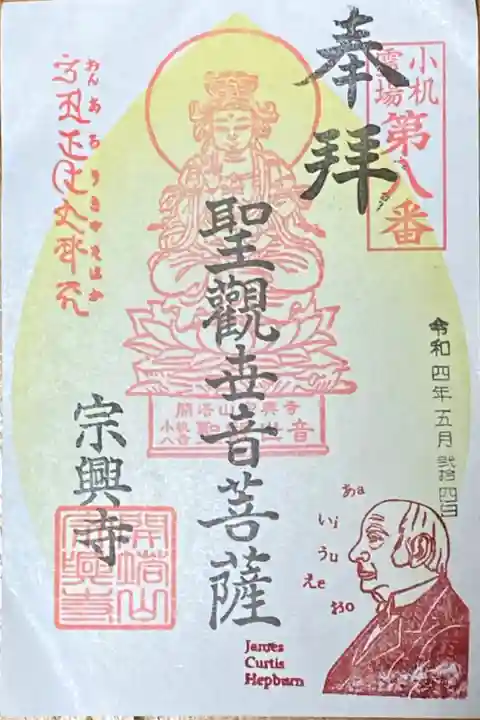 小机
霊場
第八番
奉拝
聖觀世音菩薩
宗興寺
令和四年五月弐拾四日
おんあろりきやそはか
開塔山宗興寺
小机
八番
音
開塔山
宗興寺
あa
いi
うu
えe
おo
James
Curtis
Hepburn